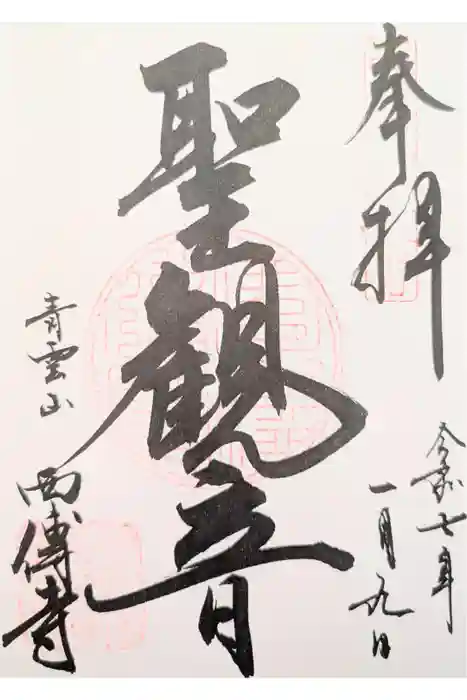 奉拝
令和七年
一月九日
聖観音
青雲山
西傳寺